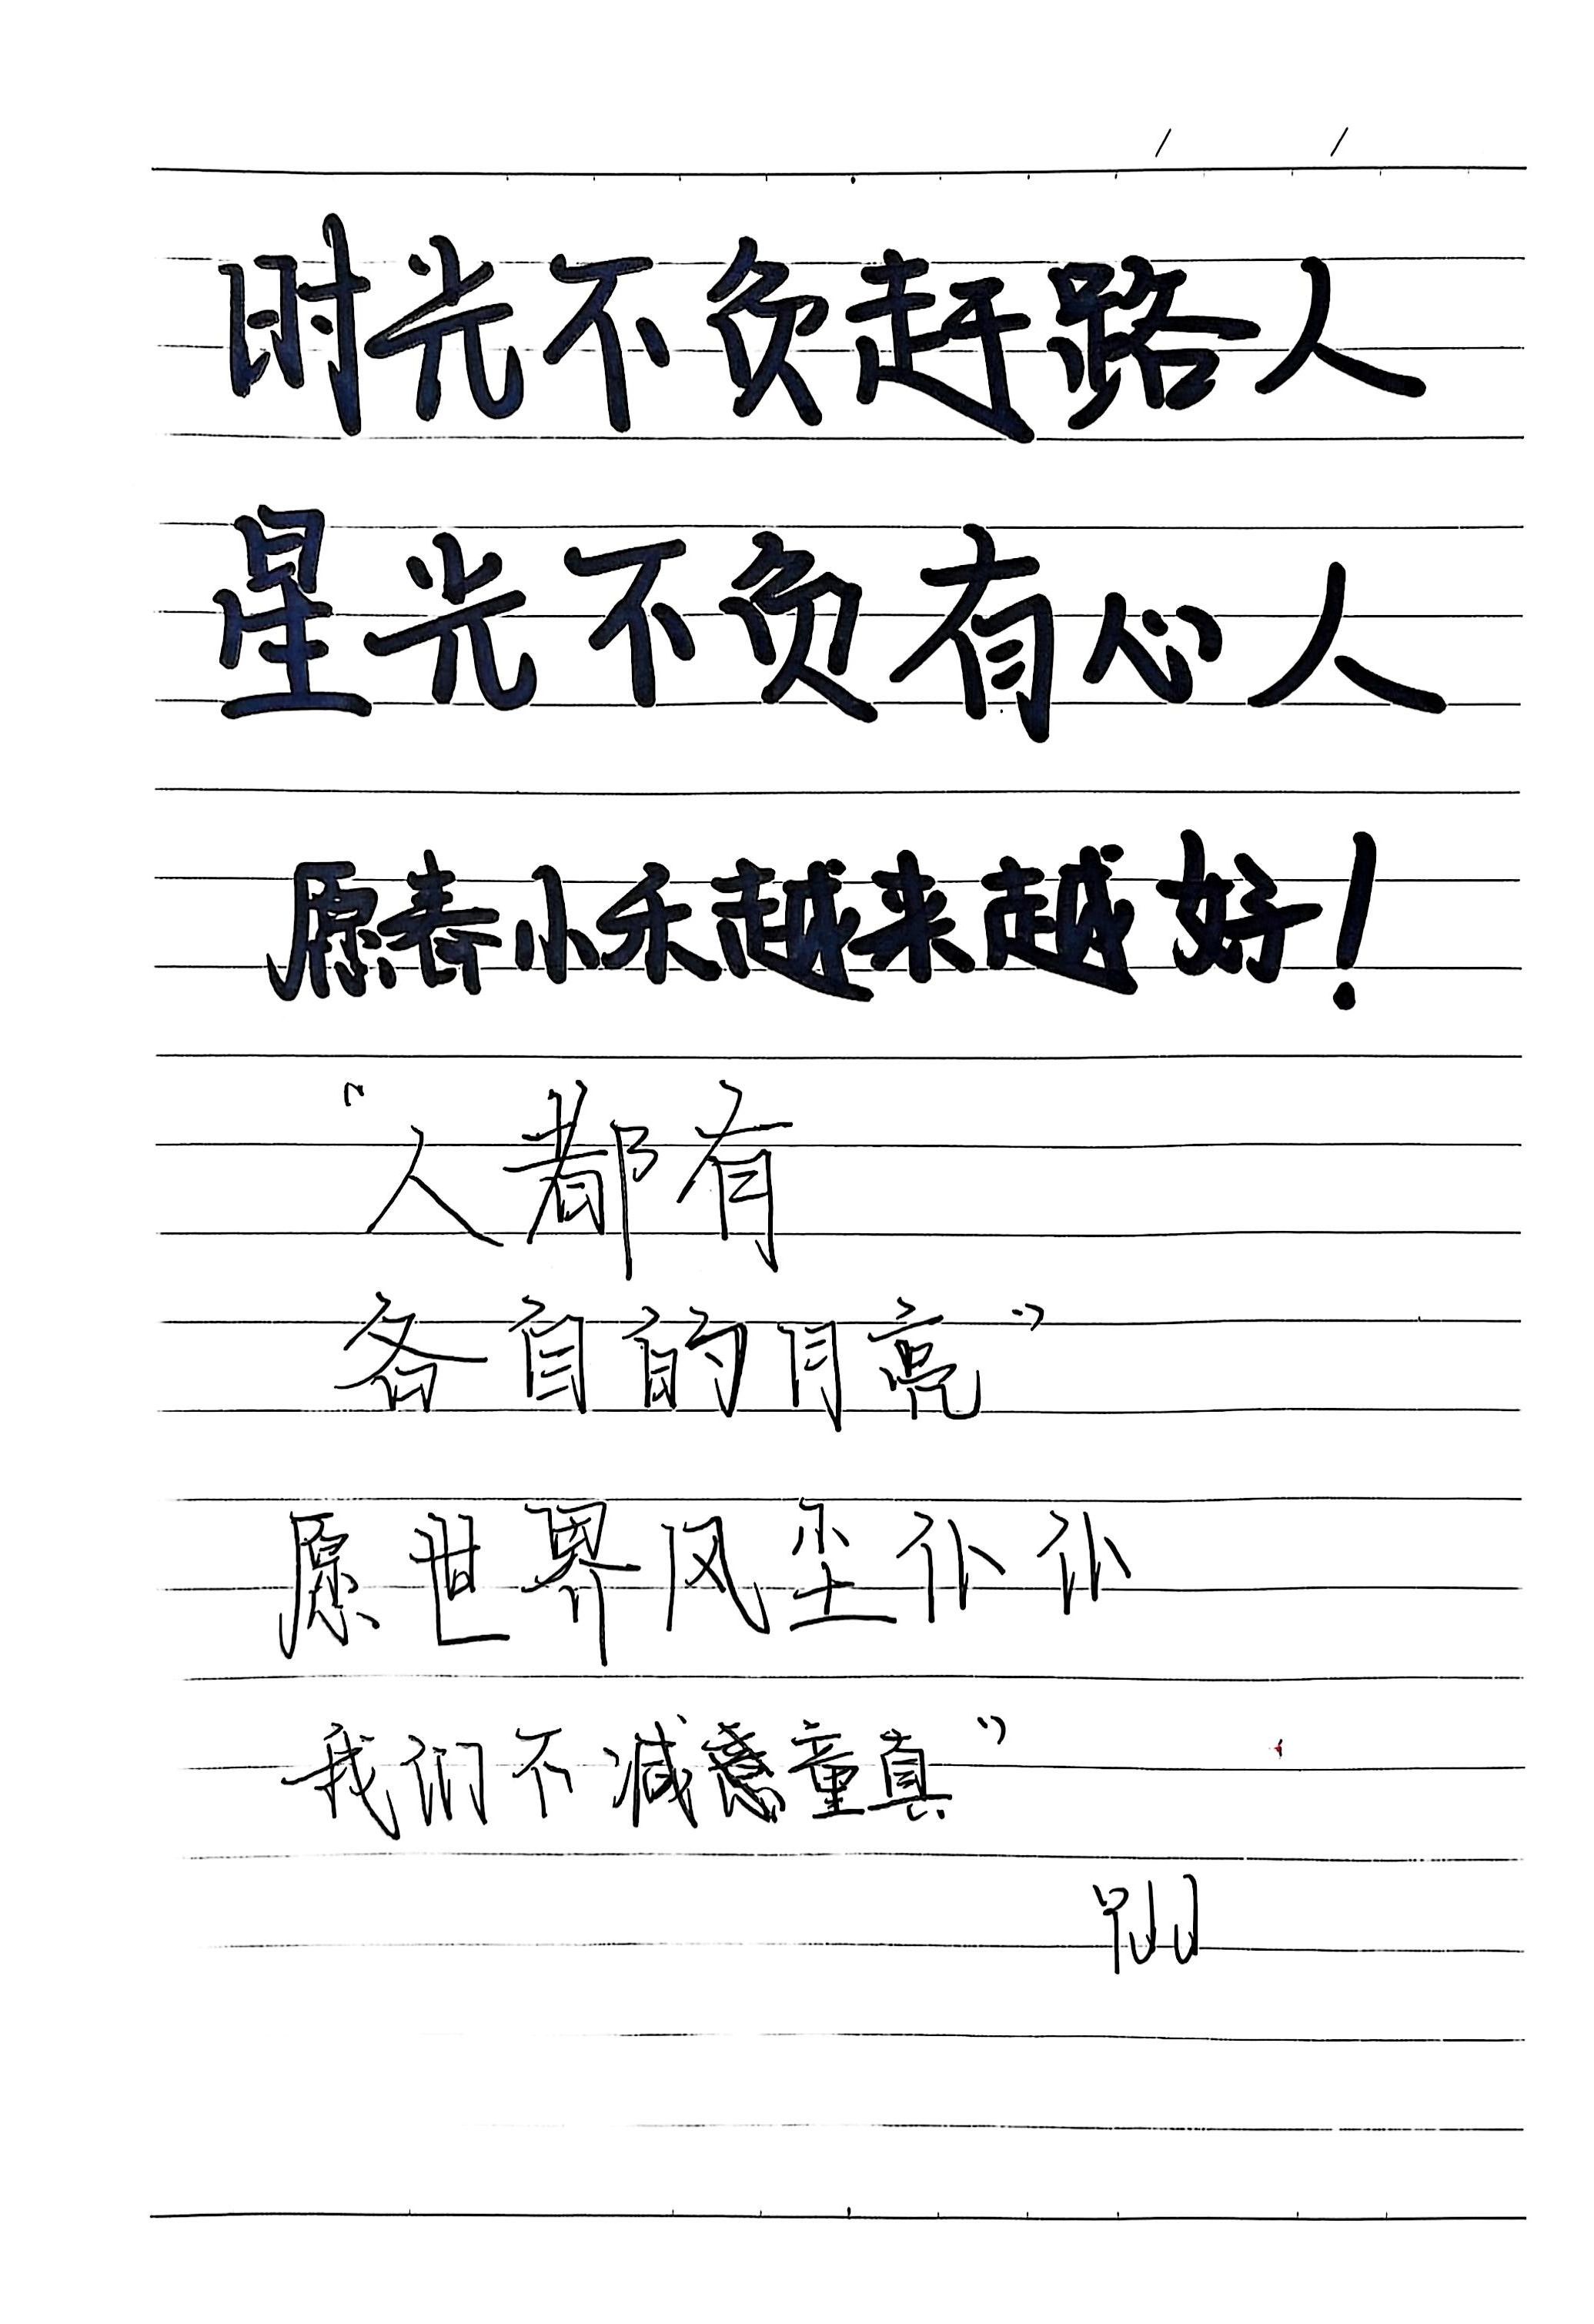 时光不负赶路人
星光不负有心人
愿春小禾越来越好！
“人都有
各自的月亮”
愿世界风尘仆仆
我们不减童真”